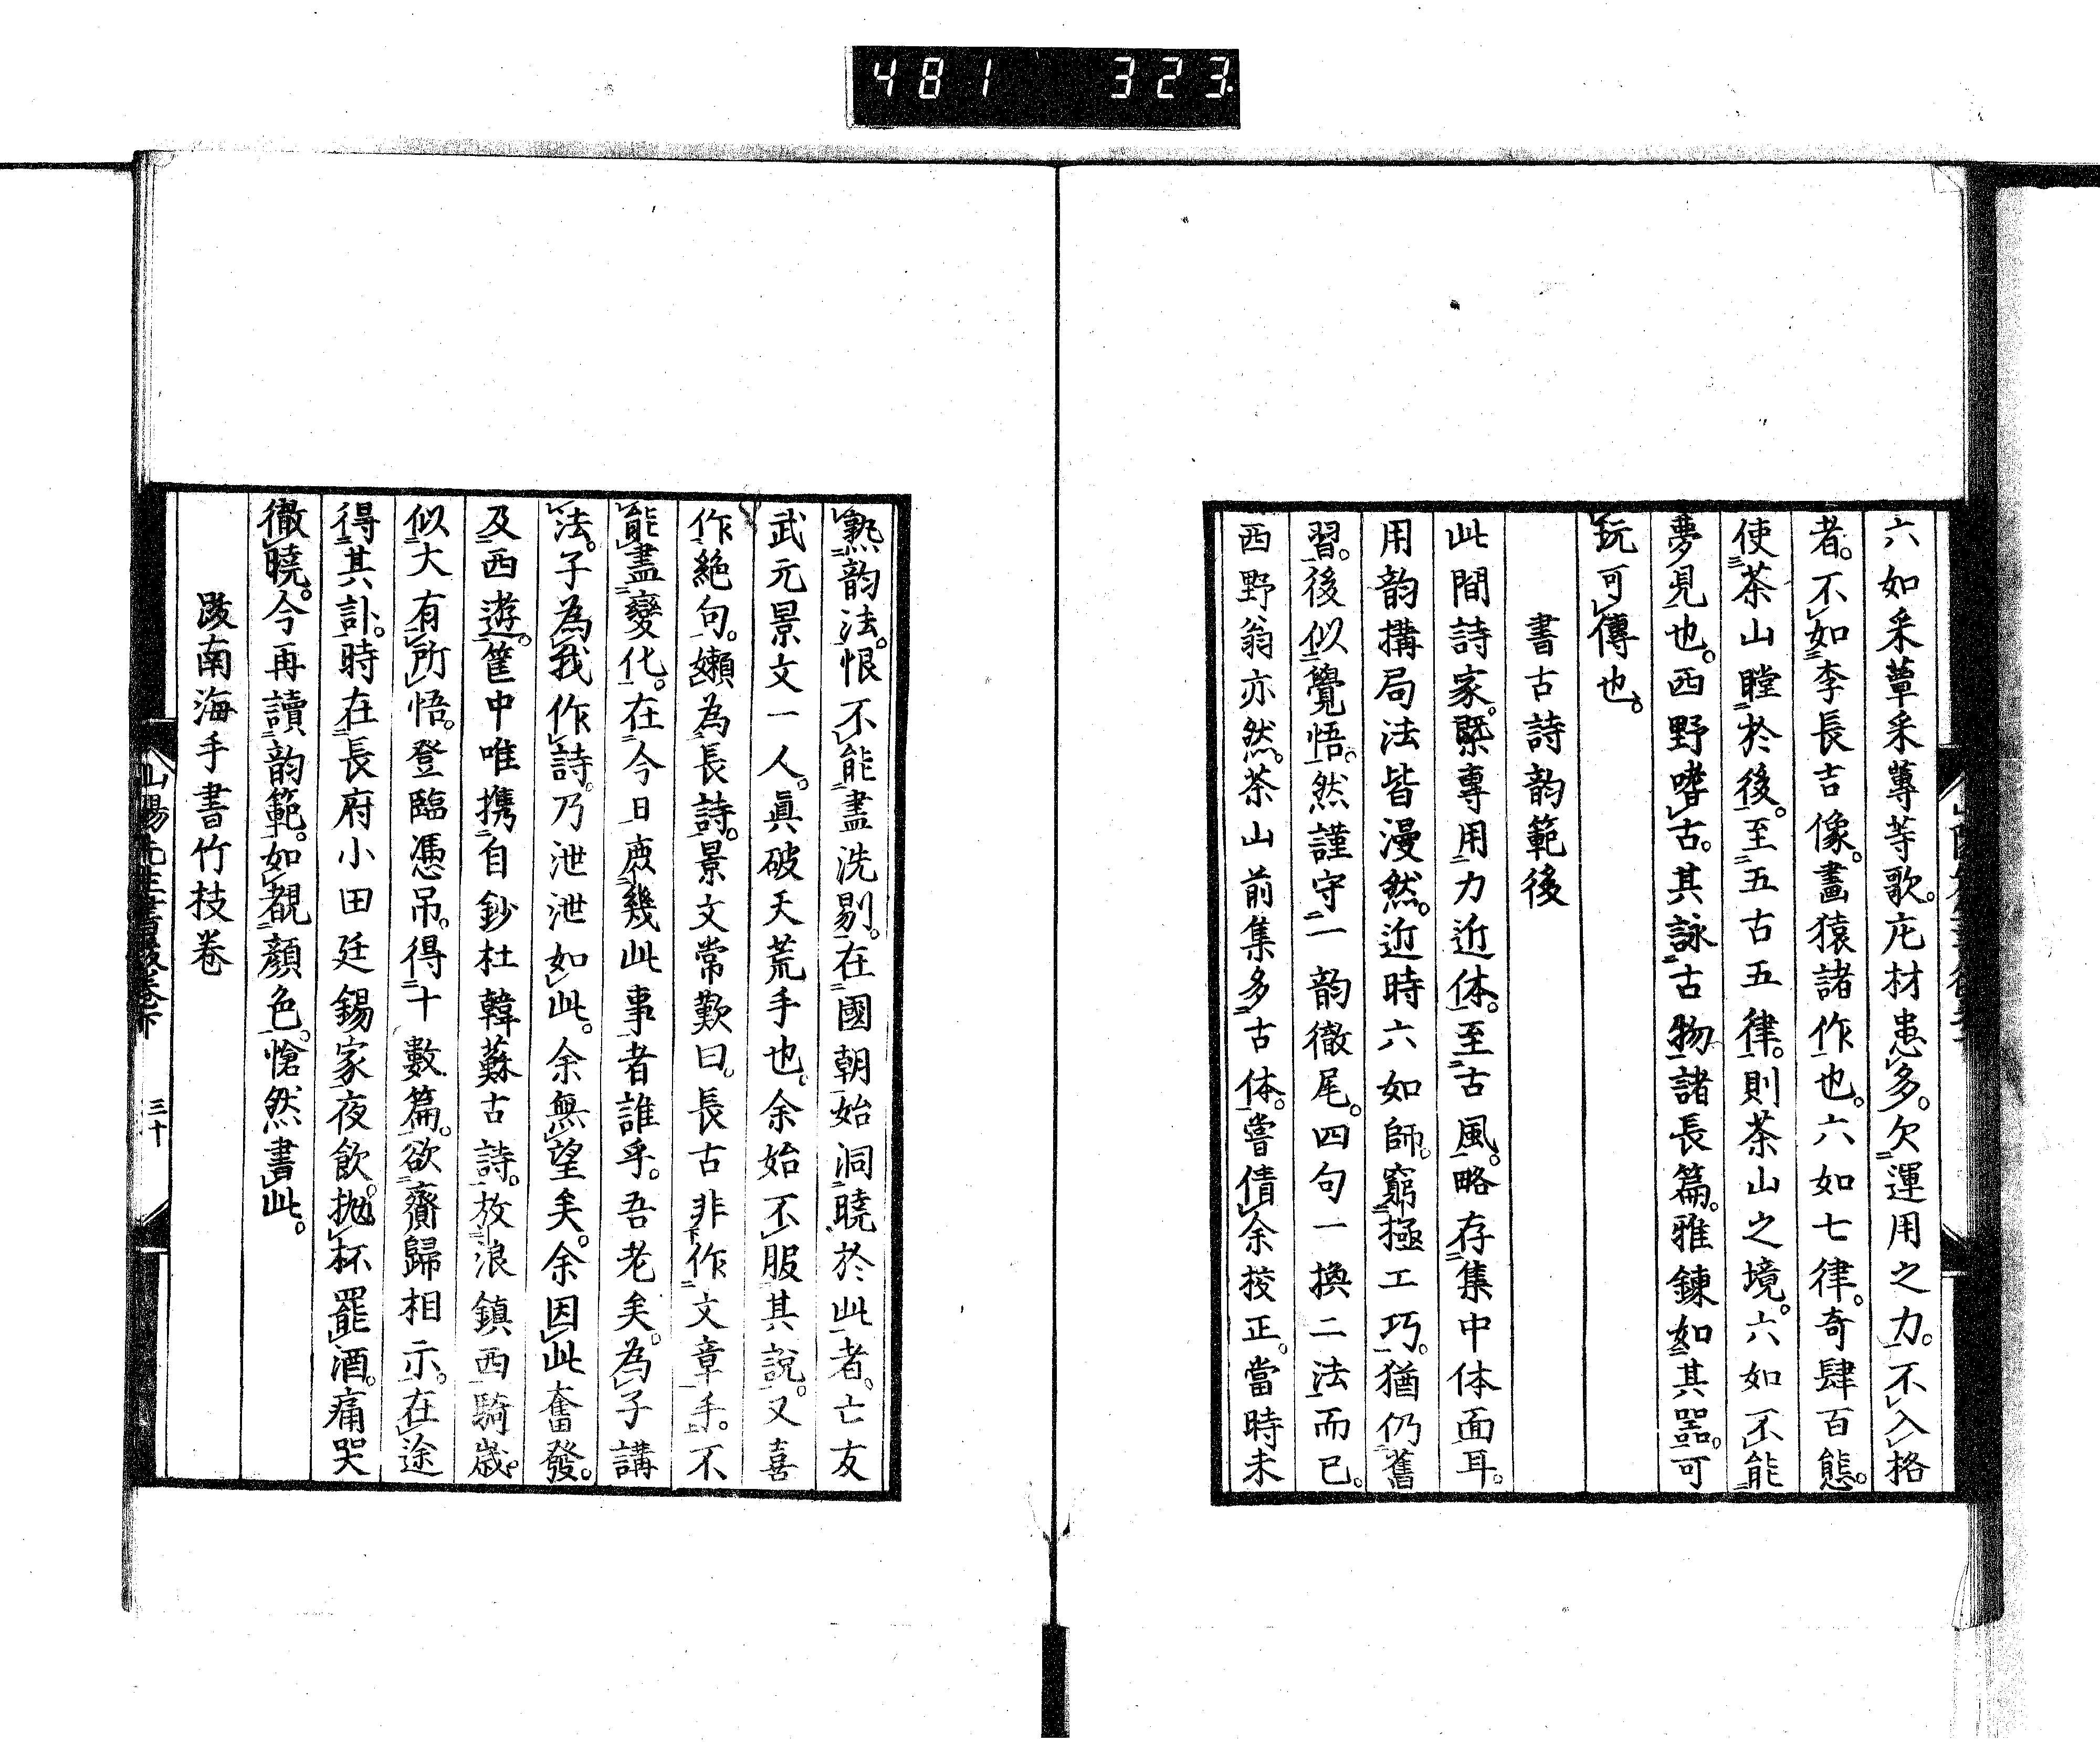 481 323
六如采蕈采蓴等歌。庀材患多。欠運用之力。不入格
者。不如李長吉像。畫猿諸作也。六如七律。奇肆百態。
使茶山瞠於後。至五古五律。則茶山之境。六如不能
夢見也。西野嗜古。其詠古物諸長篇。雅鍊如其器。可
玩可傳也。
書古詩韵範後
此間詩家。槩專用力近体。至古風。略存集中体面耳。
用韵搆局法皆漫然。近時六如師。窮極工巧。猶仍舊
習。後似覺悟。然謹守一韵徹尾。四句一換二法而已。
西野翁亦然。茶山前集多古体。嘗倩余校正。當時未
熟韵法。恨不能盡洗剔。在國朝始洞曉於此者。亡友
武元景文一人。眞破天荒手也。余始不服其說。又喜
作絶句。嬾為長詩。景文常歎曰。長古非作文章手。不
能盡變化。在今日庶幾此事者誰乎。吾老矣。為子講
法。子為我作詩。乃泄泄如此。余無望矣。余因此奮發。
及西遊。篋中唯携自鈔杜韓蘇古詩。放浪鎮西騎歲。
似大有所悟。登臨憑吊。得十數篇。欲齎歸相示。在途
得其訃。時在長府小田廷錫家夜飲。拋杯罷酒。痛哭
徹曉。今再讀韵範。如覩顏色。愴然書此。
跋南海手書竹枝卷
山陽先生書後卷下 三十